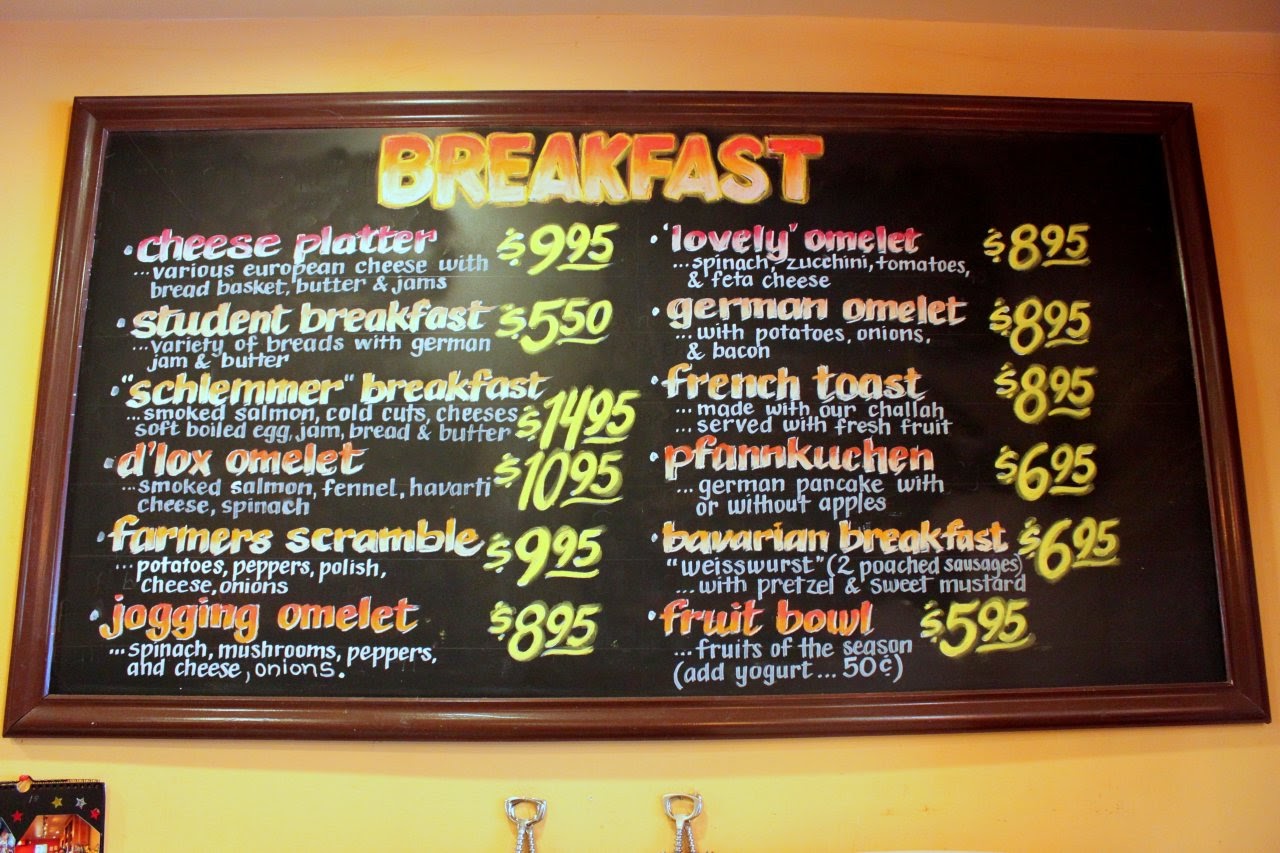 BREAKFAST
• cheese platter $9.95
...various european cheese with
bread basket, butter & jams
• student breakfast $5.50
...variety of breads with german
jam & butter
• "schlemmer" breakfast
...smoked salmon, cold cuts, cheeses $14.95
soft boiled egg, jam, bread & butter
• d'lox omelet $10.95
...smoked salmon, fennel, havarti
cheese, spinach
• farmers scramble $9.95
...potatoes, peppers, polish,
cheese, onions
• jogging omelet $8.95
...spinach, mushrooms, peppers,
and cheese, onions.
• 'lovely' omelet $8.95
...spinach, zucchini, tomatoes,
& feta cheese
• german omelet $8.95
...with potatoes, onions,
& bacon
• french toast $8.95
...made with our challah
...served with fresh fruit
• pfannkuchen $6.95
...german pancake with
or without apples
• bavarian breakfast $6.95
"weisswurst" (2 poached sausages)
...with pretzel & sweet mustard
• fruit bowl $5.95
...fruits of the season
(add yogurt... 50¢)